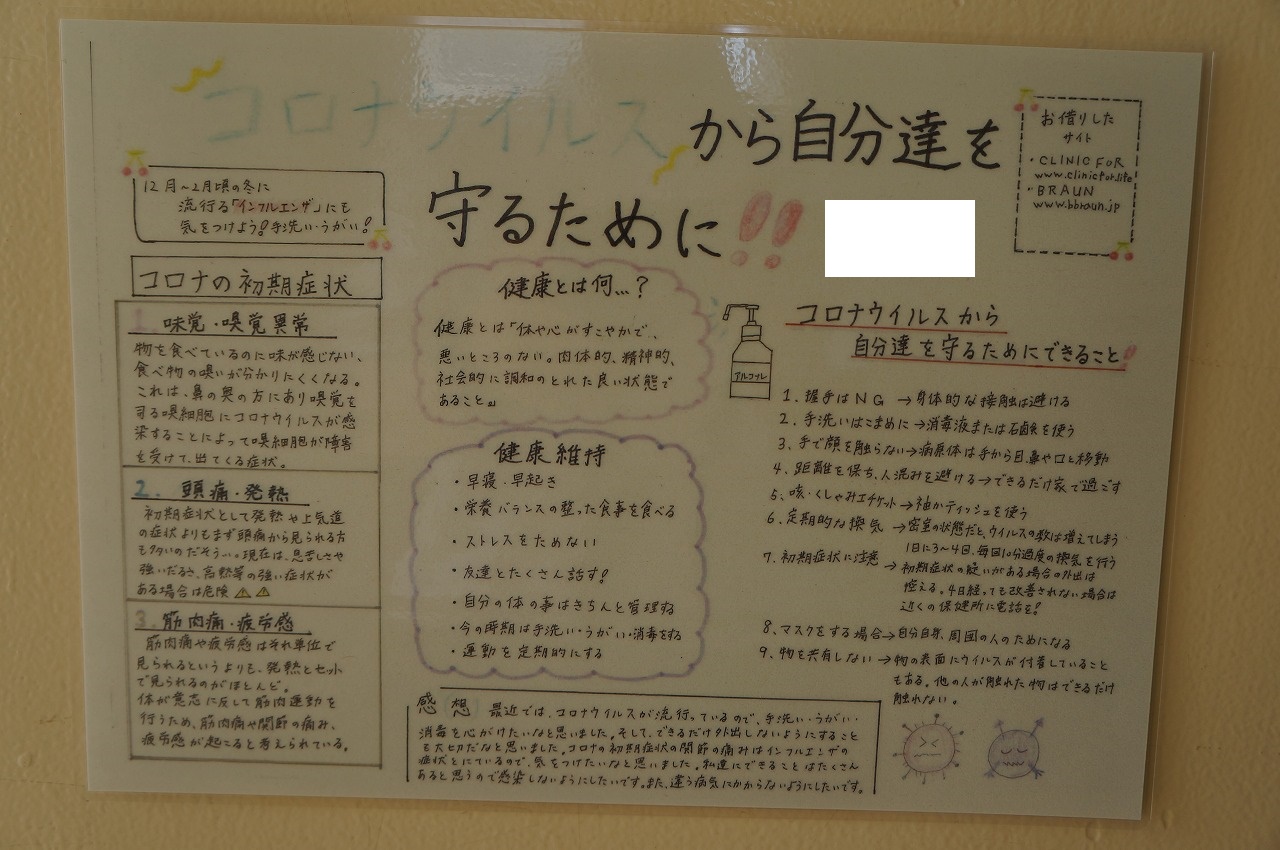 コロナウイルスから自分達を
守るために!!
お借りした
サイト
・CLINIC FOR
www.clinicfor.life
・BRAUN
www.bbraun.jp
12月~2月頃の冬に
流行る「インフルエンザ」にも
気をつけよう!手洗い・うがい!
コロナの初期症状
1. 味覚・嗅覚異常
物を食べているのに味が感じない、
食べ物の嗅いが分かりにくくなる。
これは、鼻の奥の方にあり嗅覚を
司る嗅細胞にコロナウイルスが感
染することによって嗅細胞が障害
を受けて、出てくる症状。
2. 頭痛・発熱
初期症状として発熱や上気道
の症状よりもまず頭痛から見られる方
も多いのだそう…。現在は、息苦しさや
強いだるさ、高熱等の強い症状が
ある場合は危険⚠⚠
3. 筋肉痛・疲労感
筋肉痛や疲労感はそれ単位で
見られるというよりも、発熱とセット
で見られるのがほとんど。
体が意志に反して筋肉運動を
行うため、筋肉痛や関節の痛み、
疲労感が起こると考えられている。
健康とは何…?
健康とは「体や心がすこやかで、
悪いところのない。肉体的、精神的、
社会的に調和のとれた良い状態で
あること」
健康維持
・早寝・早起き
・栄養バランスの整った食事を食べる
・ストレスをためない
・友達とたくさん話す!
・自分の体の事はきちんと管理する
・今の時期は手洗い・うがい・消毒をする
・運動を定期的にする
アルコール
コロナウイルスから
自分達を守るためにできること!!
1. 握手はNG→身体的な接触は避ける
2. 手洗いはこまめに→消毒液または石鹸を使う
3. 手で顔を触らない→病原体は手から目、鼻や口と移動
4. 距離を保ち、人混みを避ける→できるだけ家で過ごす
5、咳・くしゃみエチケット→袖かティッシュを使う
6、定期的な換気→密室の状態だと、ウイルスの数は増えてしまう
1日に3~4回、毎回10分過度の換気を行う
7. 初期症状に注意→初期症状の疑いがある場合の外出は
控える。4日経っても改善されない場合は
近くの保健所に電話を!
8、マスクをする場合→自分自身、周囲の人のためになる
9、物を共有しない→物の表面にウイルスが付着していること
もある。他の人が触れた物はできるだけ
触れない。
感想 最近では、コロナウイルスが流行っているので、手洗い・うがい・
消毒を心がけたいなと思いました。そして、できるだけ外出しないようにすること
も大切だなと思いました。コロナの初期症状の関節の痛みはインフルエンザの
症状とにているので、気をつけたいなと思いました。私達にできることはたくさん
あると思うので感染しないようにしたいです。また、違う病気にかからないようにしたいです。